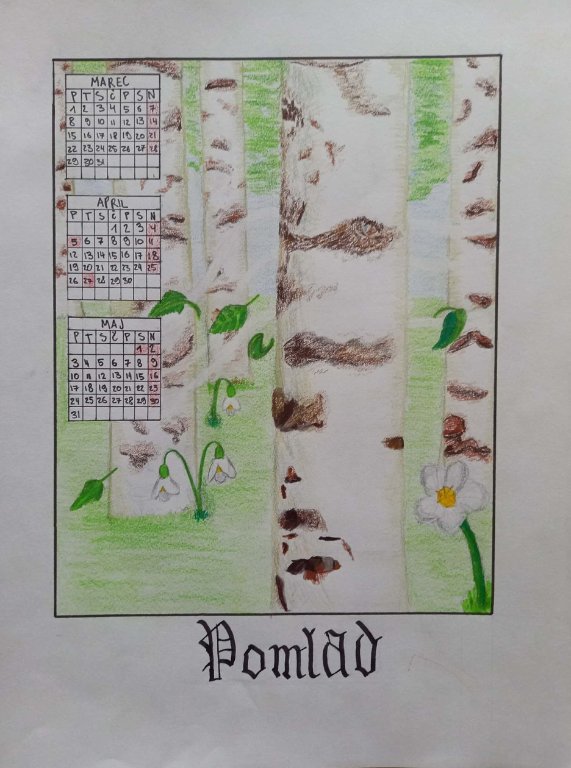 MAREC
P T S Č P S N
1 2 3 4 5 6 7
8 9 10 11 12 13 14
15 16 17 18 19 20 21
22 23 24 25 26 27 28
29 30 31
APRIL
P T S Č P S N
1 2 3 4
5 6 7 8 9 10 11
12 13 14 15 16 17 18
19 20 21 22 23 24 25
26 27 28 29 30
MAJ
P T S Č P S N
1 2
3 4 5 6 7 8 9
10 11 12 13 14 15 16
17 18 19 20 21 22 23
24 25 26 27 28 29 30
31
Pomlad